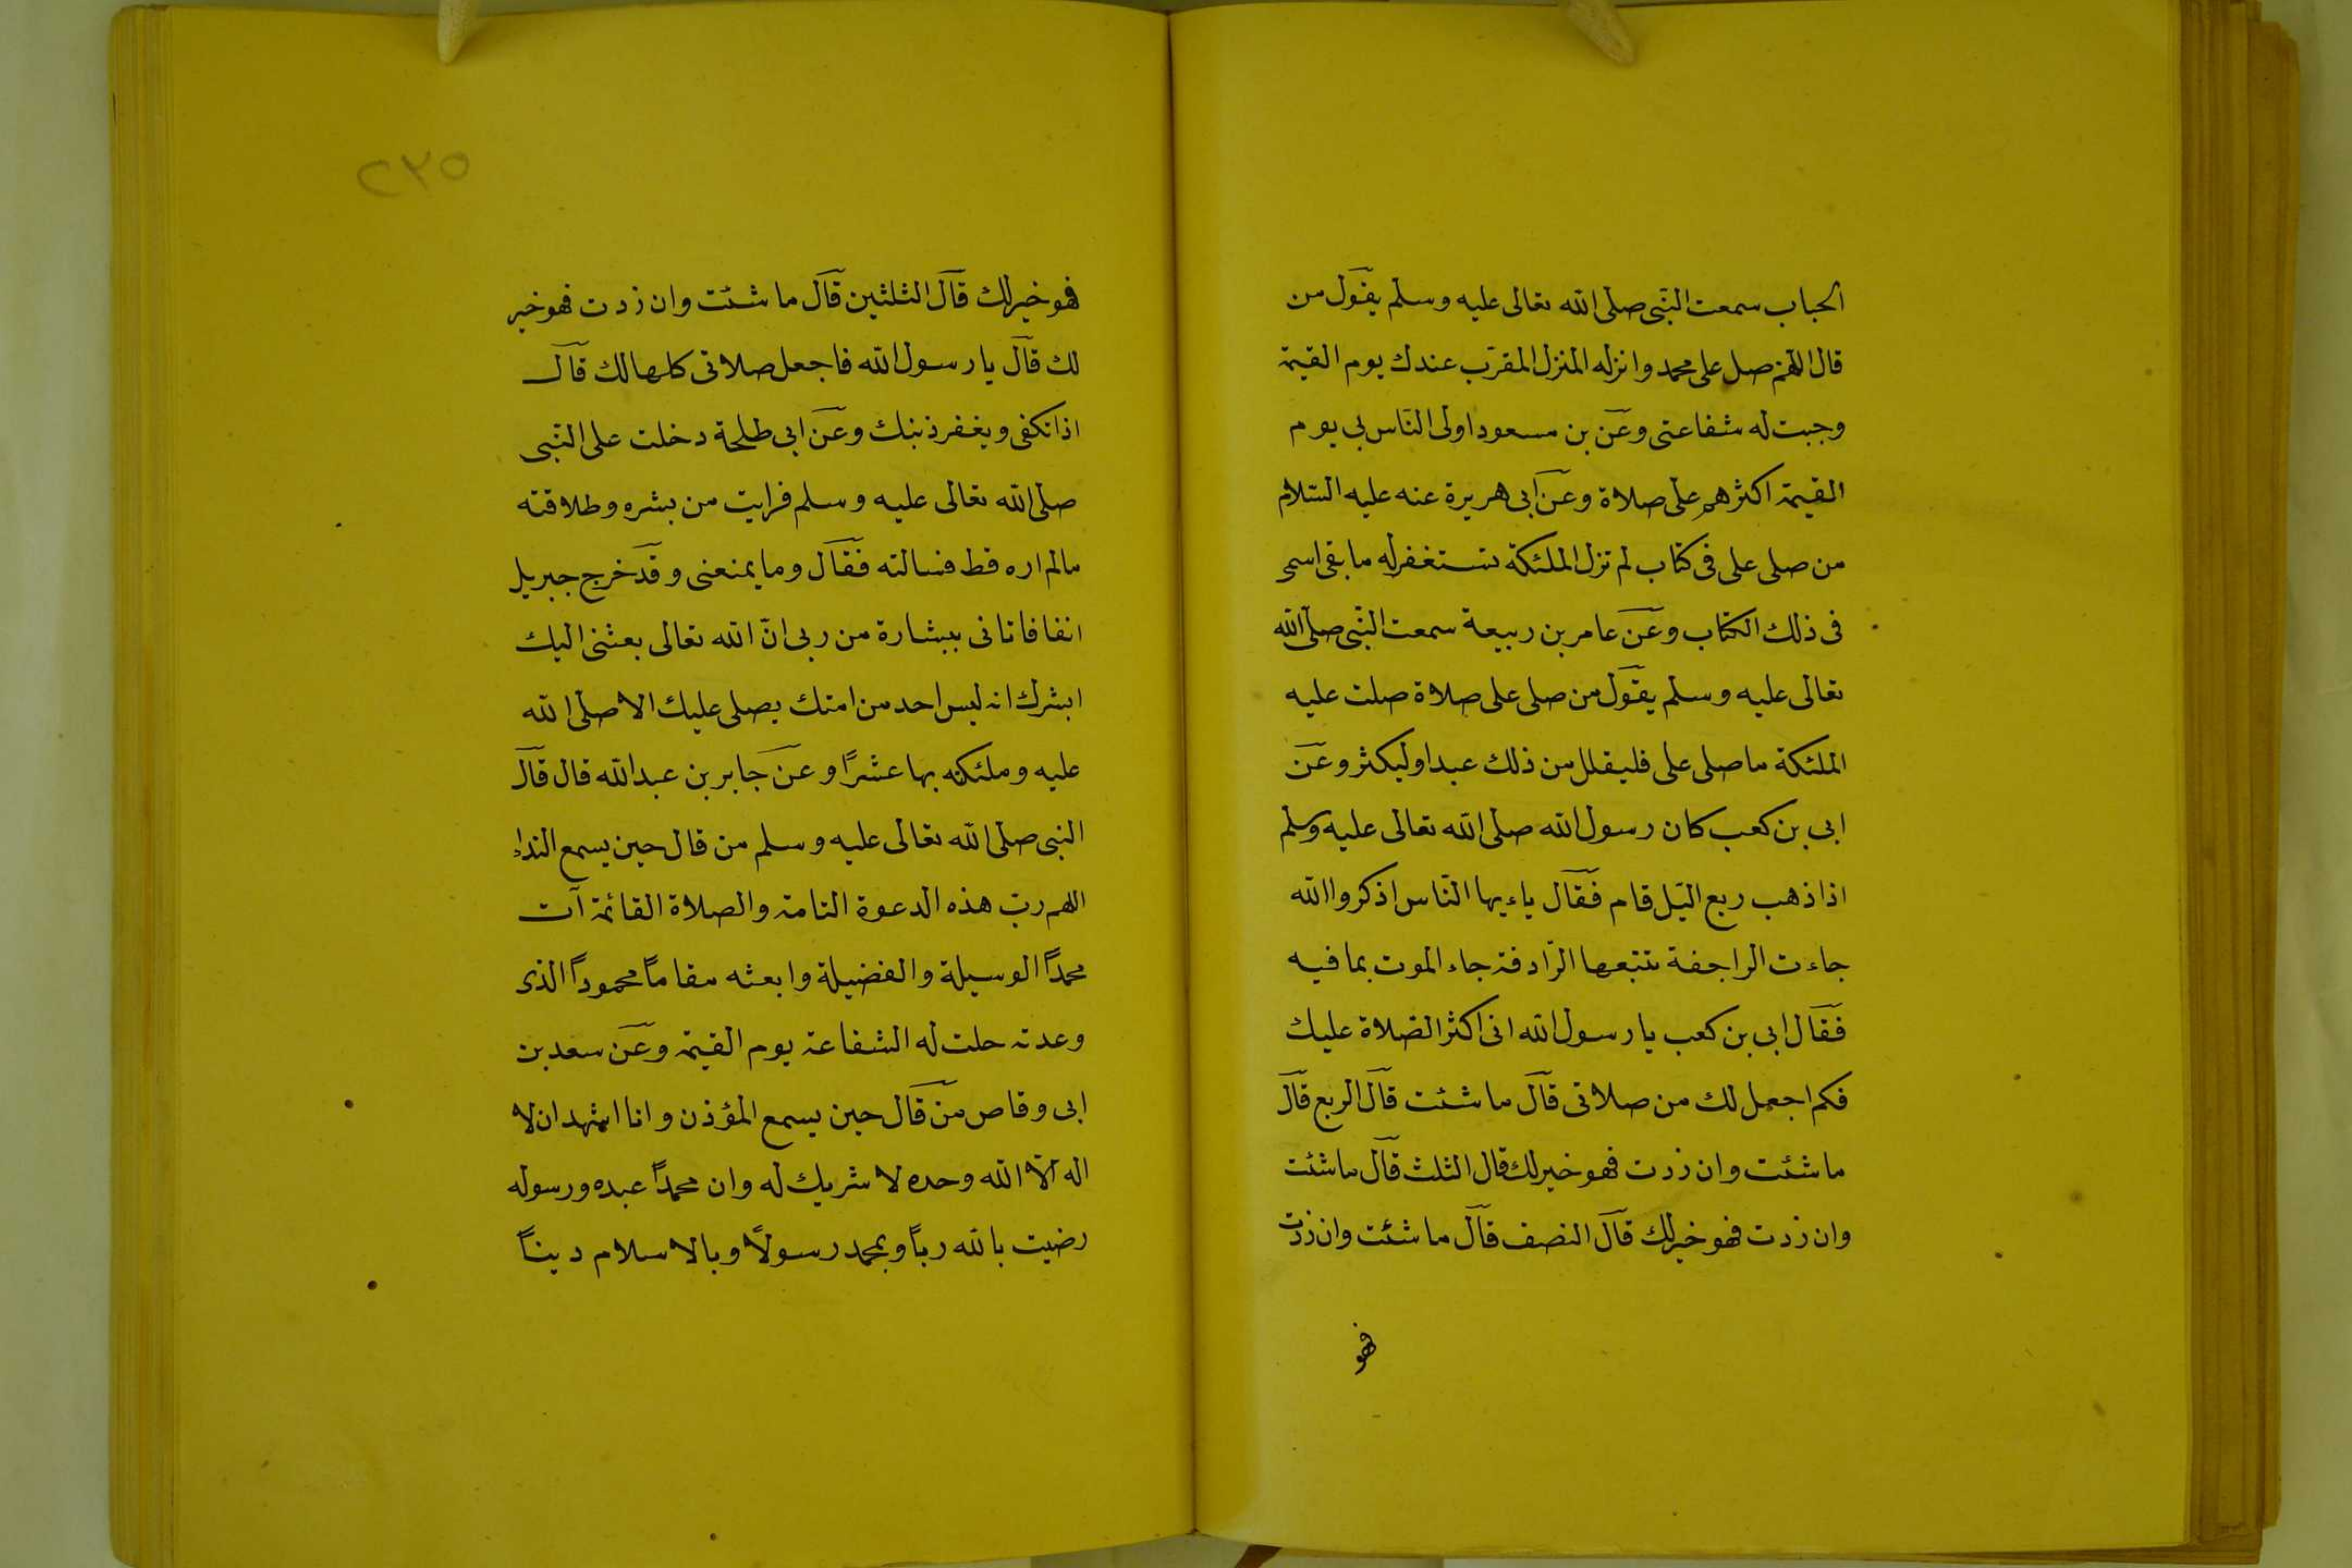 الحباب سمعت النبى صلى الله تعالى عليه وسلم يقول من
قال اللهم صل على محمد وانزله المنزل المقرب عندك يوم القيمة
وجبت له شفاعتى وعن بن مسعود اولى الناس بى يوم
القيمة اكثرهم على صلاة وعن ابى هريرة عنه عليه السلام
من صلى على فى كتاب لم تزل الملئكة تستغفرله ما بقى اسمى
فى ذلك الكتاب وعن عامر بن ربيعة سمعت النبى صلى الله
تعالى عليه وسلم يقول من صلى على صلاة صلت عليه
الملئكة ما صلى على فليقلل من ذلك عبد اوليكثر وعن
ابى بن كعب كان رسول الله صلى الله تعالى عليه وسلم
اذا ذهب ربع اليل قام فقال ياءيها الناس اذكروا الله
جاءت الراجفة تتبعها الرادفة جاء الموت بما فيه
فقال ابى بن كعب يا رسول الله انى اكثر الصلاة عليك
فكم اجعل لك من صلاتى قال ما شئت قال الربع قال
ما شئت وان زدت فهو خير لك قال الثلث قال ما شئت
وان زدت فهو خير لك قال النصف قال ما شئت وان زدت
فهو
٢٣٥
فهو خير لك قال الثلثين قال ما شئت وان زدت فهو خير
لك قال يا رسول الله فاجعل صلاتى كلها لك قال
اذا تكفى ويغفر ذنبك وعن ابى طلحة دخلت على النبى
صلى الله تعالى عليه وسلم فرايت من بشره وطلاقته
مالم اره قط فسالته فقال وما يمنعنى وقد خرج جبريل
انفا فاتانى ببشارة من ربى انّ الله تعالى بعثنى اليك
ابشرك انه ليس احد من امتك يصلى عليك الا صلى الله
عليه وملئكته بها عشرًا وعن جابر بن عبد الله قال قال
النبى صلى الله تعالى عليه وسلم من قال حين يسمع النداء
اللهم ربّ هذه الدعوة التامة والصلاة القائمة آت
محمدًا الوسيلة والفضيلة وابعثه مقامًا محمودًا الذى
وعدته حلت له الشفاعة يوم القيمة وعن سعد بن
ابى وقاص من قال حين يسمع المؤذن وانا اشهد ان لا
اله الّا الله وحده لا شريك له وان محمدًا عبده ورسوله
رضيت بالله ربًا وبمحمد رسولًا وبالاسلام دينًا